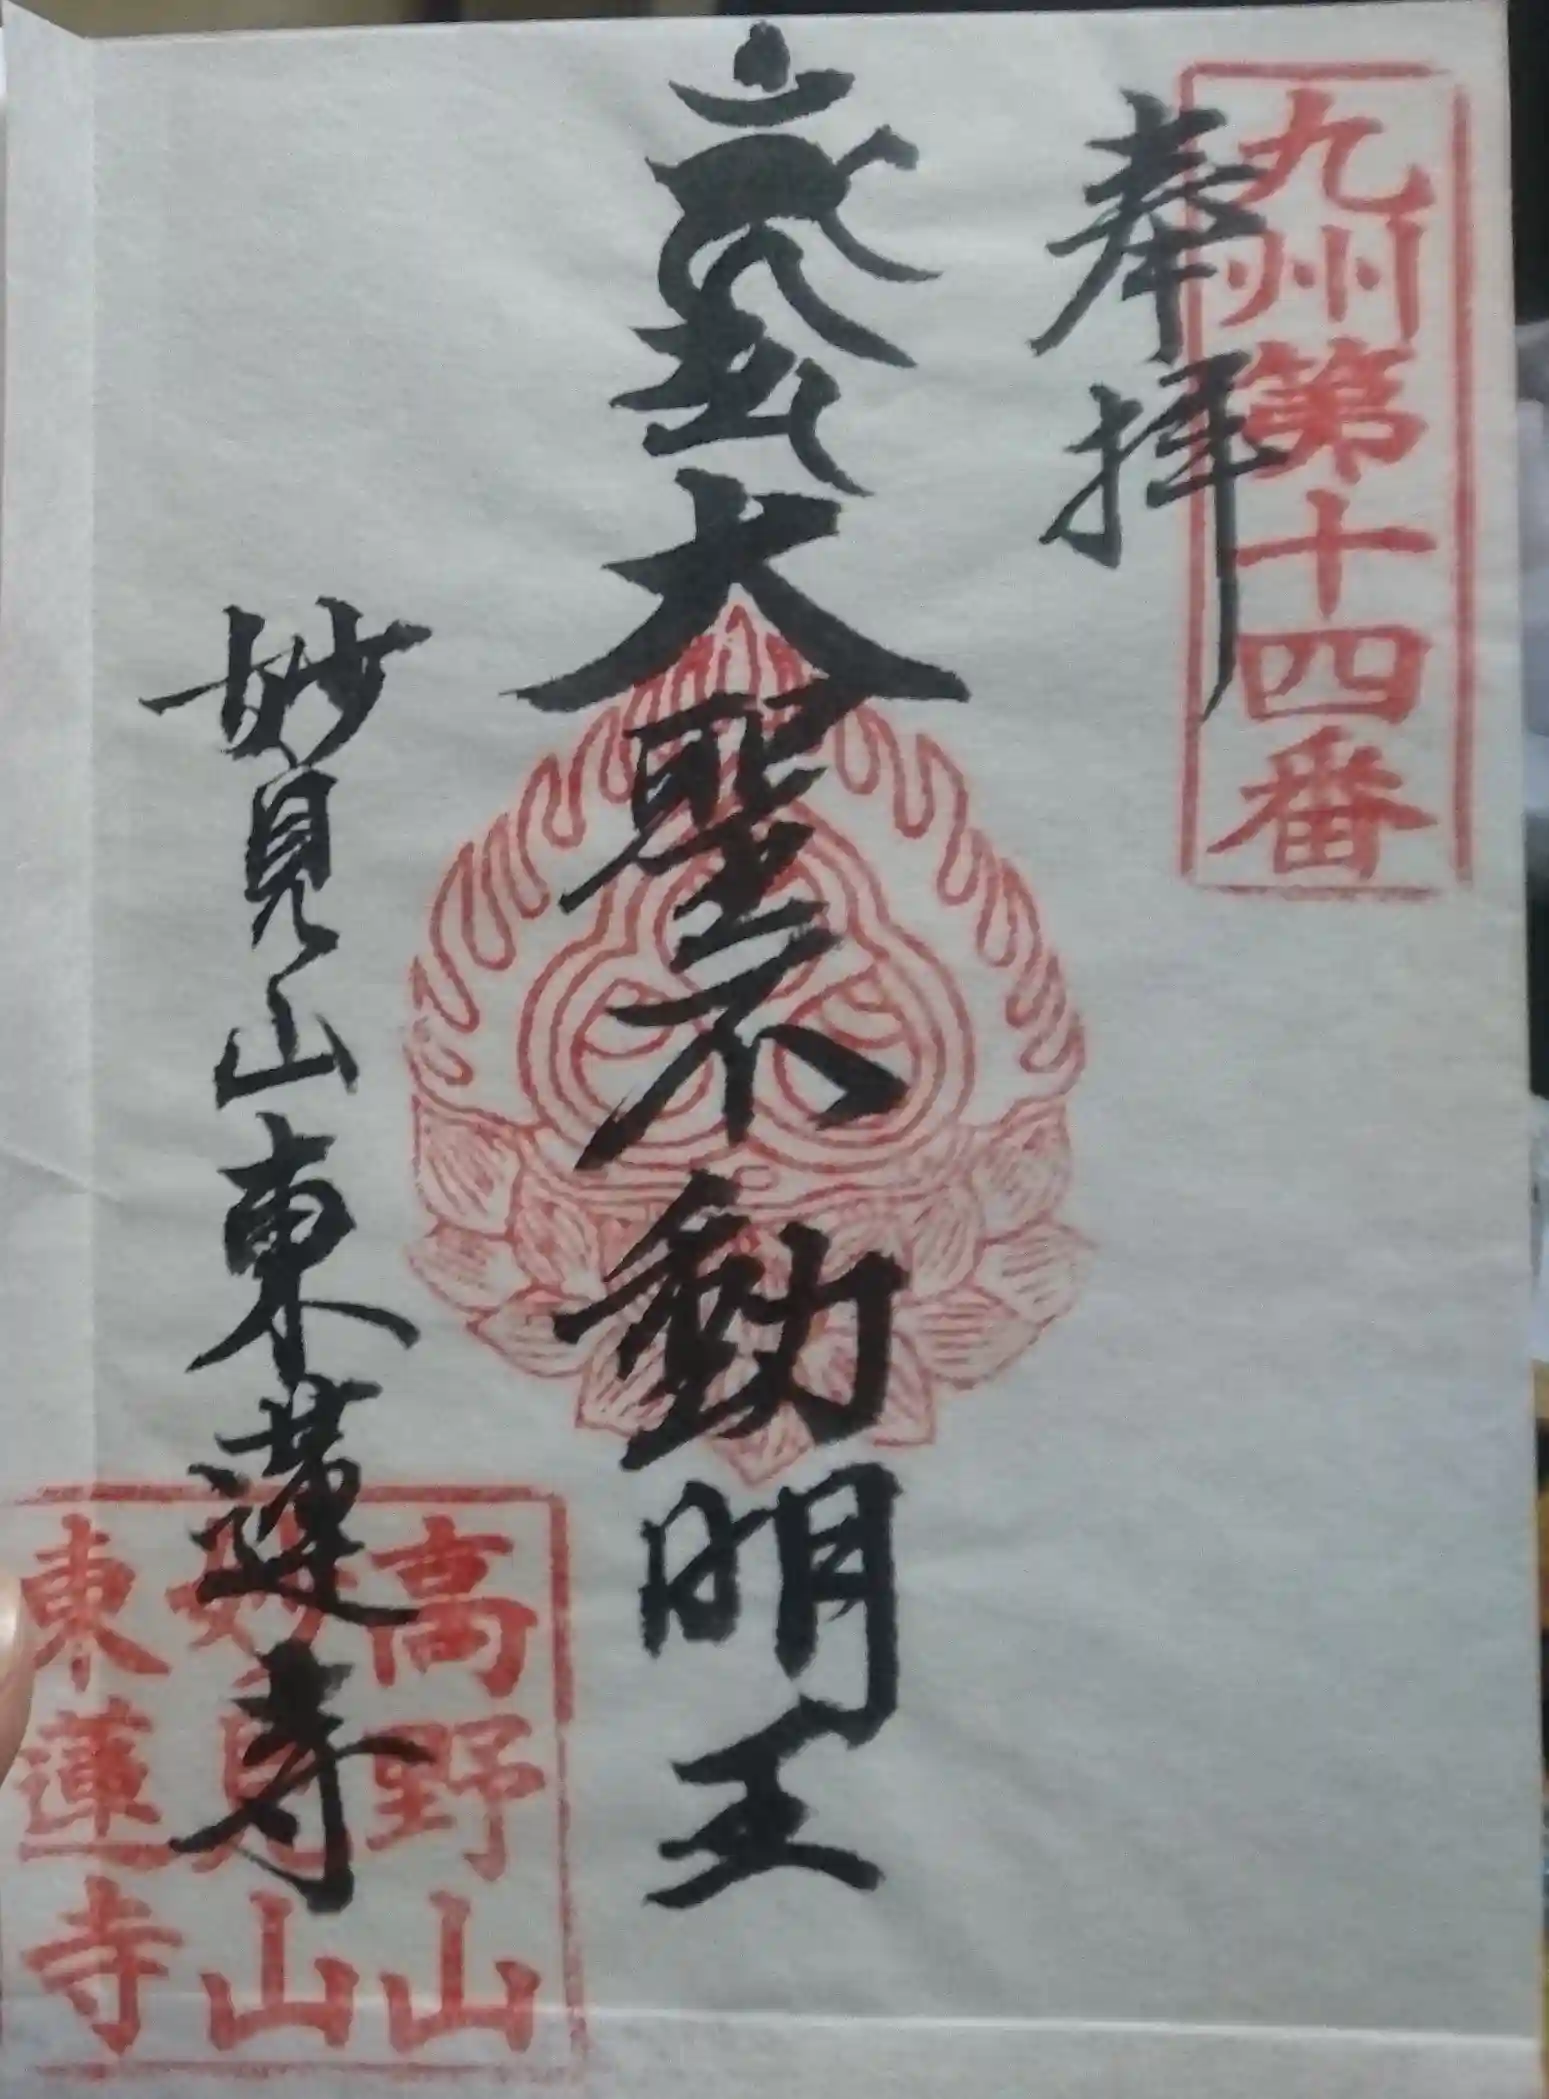 九州第十四番
奉拝
大聖不動明王
妙見山東蓮寺
高野山
妙見山
東蓮寺